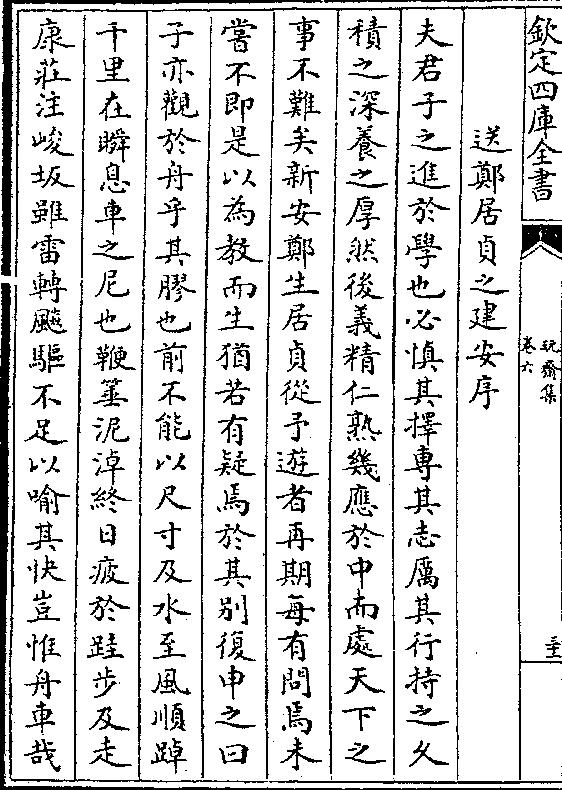 欽定四庫全書
玩齋集
卷六
三十
送鄭居貞之建安序
夫君子之進於學也必慎其擇專其志厲其行持之久
積之深養之厚然後義精仁熟幾應於中而處天下之
事不難矣新安鄭生居貞從予遊者再期每有問焉未
嘗不即是以為教而生猶若有疑焉於其别復申之曰
子亦觀於舟乎其膠也前不能以尺寸及水至風順踔
千里在瞬息車之尼也鞭箠泥淖終日疲於跬步及走
康莊注峻坂雖雷轉飈驅不足以喻其快豈惟舟車哉